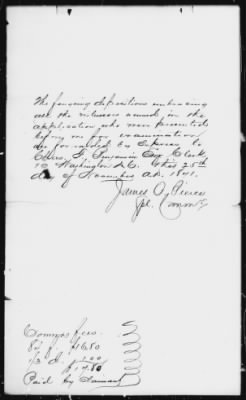 The foregoing depositions embracing
all the witnesses named in the
application, who were presented
before me for examination
are forwarded by Express to
Chas. F. Benjamin Esq. Clerk,
to Washington D.C. this 25th
day of November A.D. 1871.
James O. Pierce
Spl. Comm'r
Comm'rs fees.
$16.50
1.00
Paid by Claimant